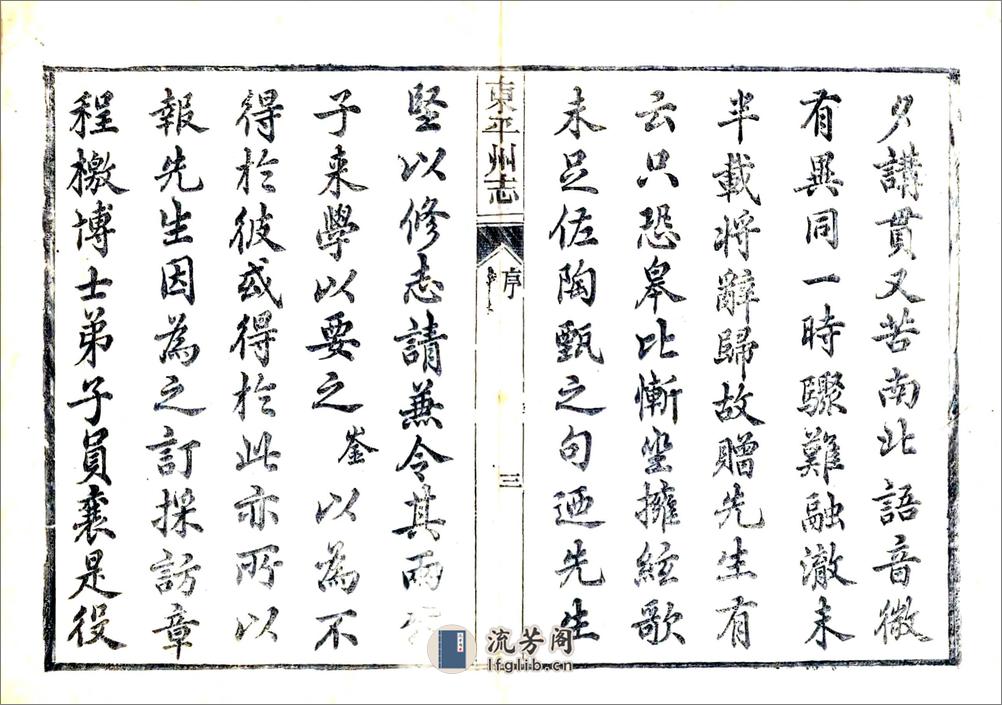 夕講貫又苦南北語音微
有異同一時驟難融澈未
半載將辭歸故贈先生有
云只恐皋比慚坐擁絃歌
未足佐陶甄之句迺先生
東平州志
序
三
堅以修志請兼令其兩
子来學以要之崟以為不
得於彼或得於此亦所以
報先生因為之訂採訪章
程檄博士弟子員襄是役
流芳阁
lfglib.cn